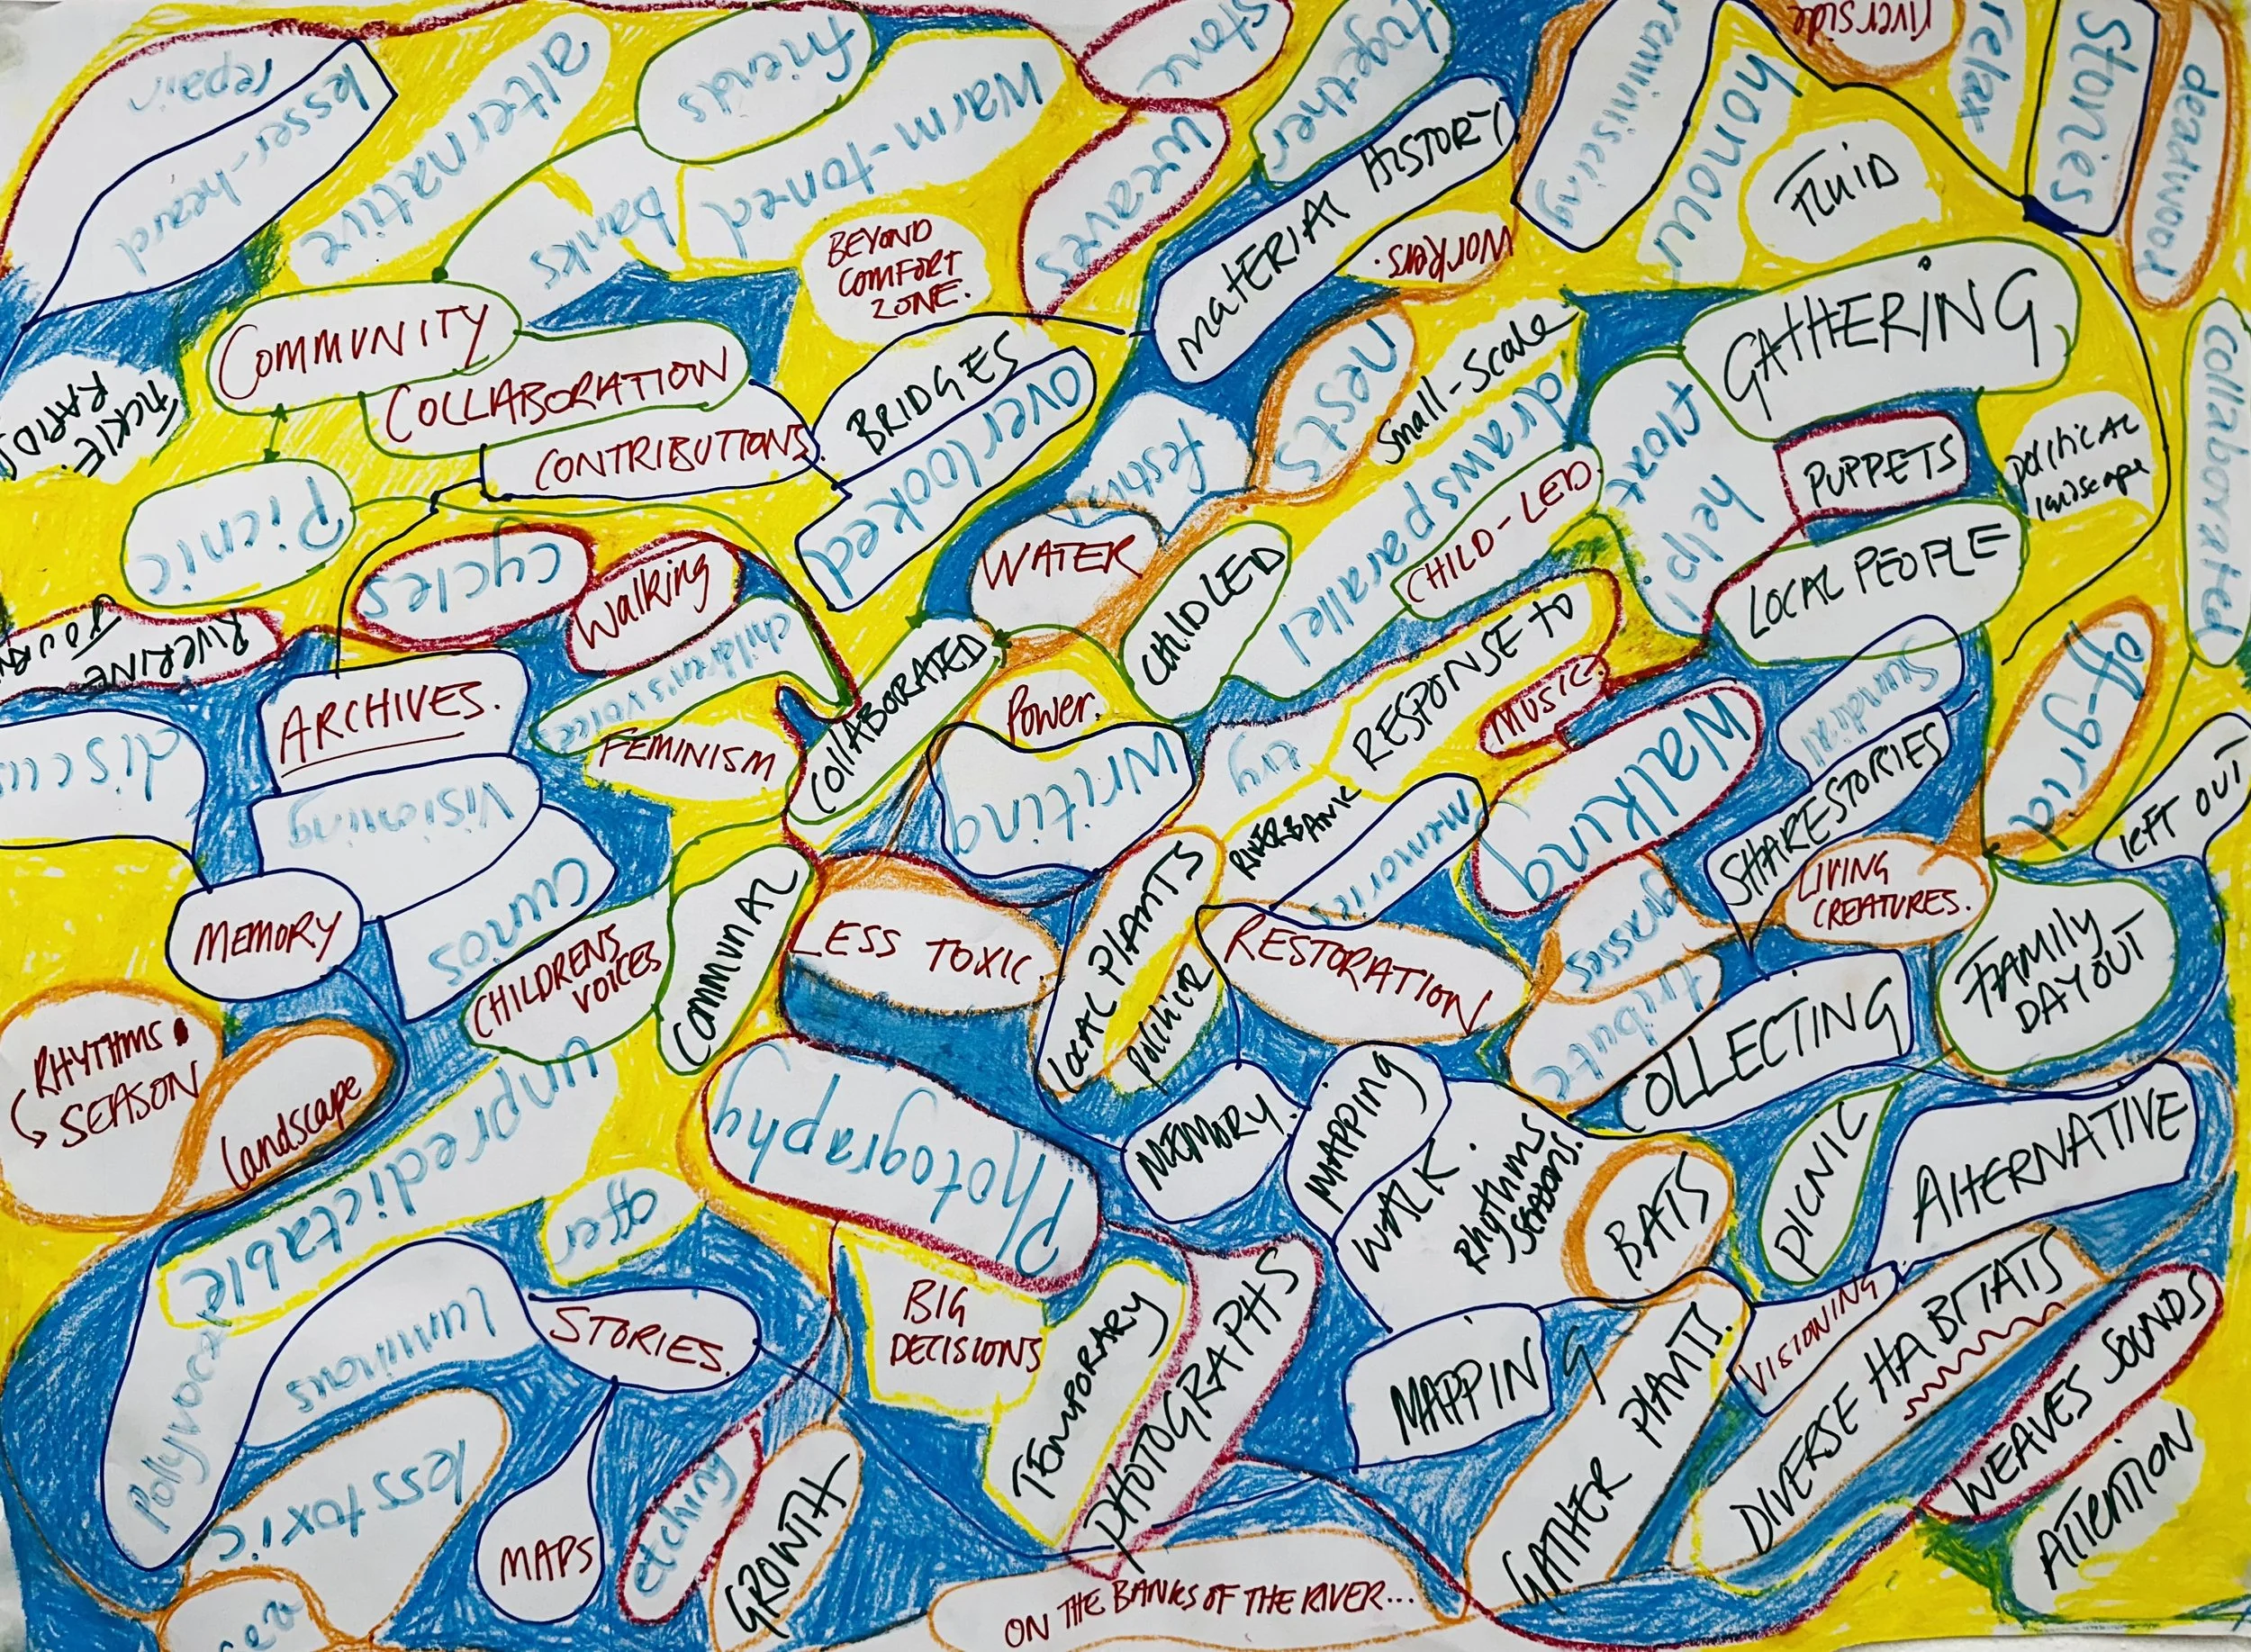 repair
lesser-heard
alternative
friends
warm-toned
banks
stone
weaves
together
MATERIAL HISTORY
reminiscing
honour
riverside
relax
Stories
deadwood
FLUID
workers.
BEYOND
COMFORT
ZONE.
COMMUNITY
COLLABORATION
CONTRIBUTIONS.
BRIDGES
overlooked
FICKLE.
RAPID
Picnic
nests
Small-Scale
draws parallel
GATHERING
float
help!
PUPPETS
POLITICAL
landscape
Collaborated
LOCAL PEOPLE
CHILD-LED.
WATER
CHILDLED
cycles
Walking
children's voice
RIVERINE
ARCHIVES.
FEMINISM
COLLABORATED
Power.
Writing
RESPONSE TO
MUSIC.
Walking
Sundial
SHARESTORIES
off-grid
LEFT OUT
Visioning
Curios
MEMORY
CHILDRENS
VOICES
COMMUNAL
LESS TOXIC
LOCAL PLANTS
RIVERBANK
memories
RESTORATION
grasses
LIVING
CREATURES.
FAMILY
DAY OUT
COLLECTING
RHYTHMS
SEASON
Landscape
unpredictable
offer
Photography
MEMORY.
MAPPING
WALK.
Rhythms
SEASONS.
BATS
PICNIC
ALTERNATIVE
Pollyvocal
luminous
STORIES.
BIG
DECISIONS
TEMPORARY
PHOTOGRAPHS
MAPPING
GATHER PLANTS.
VISIONING
DIVERSE HABITATS
WEAVES SOUNDS
ATTENTION
less toxic
MAPS
etching
GROWTH
ON THE BANKS OF THE RIVER...